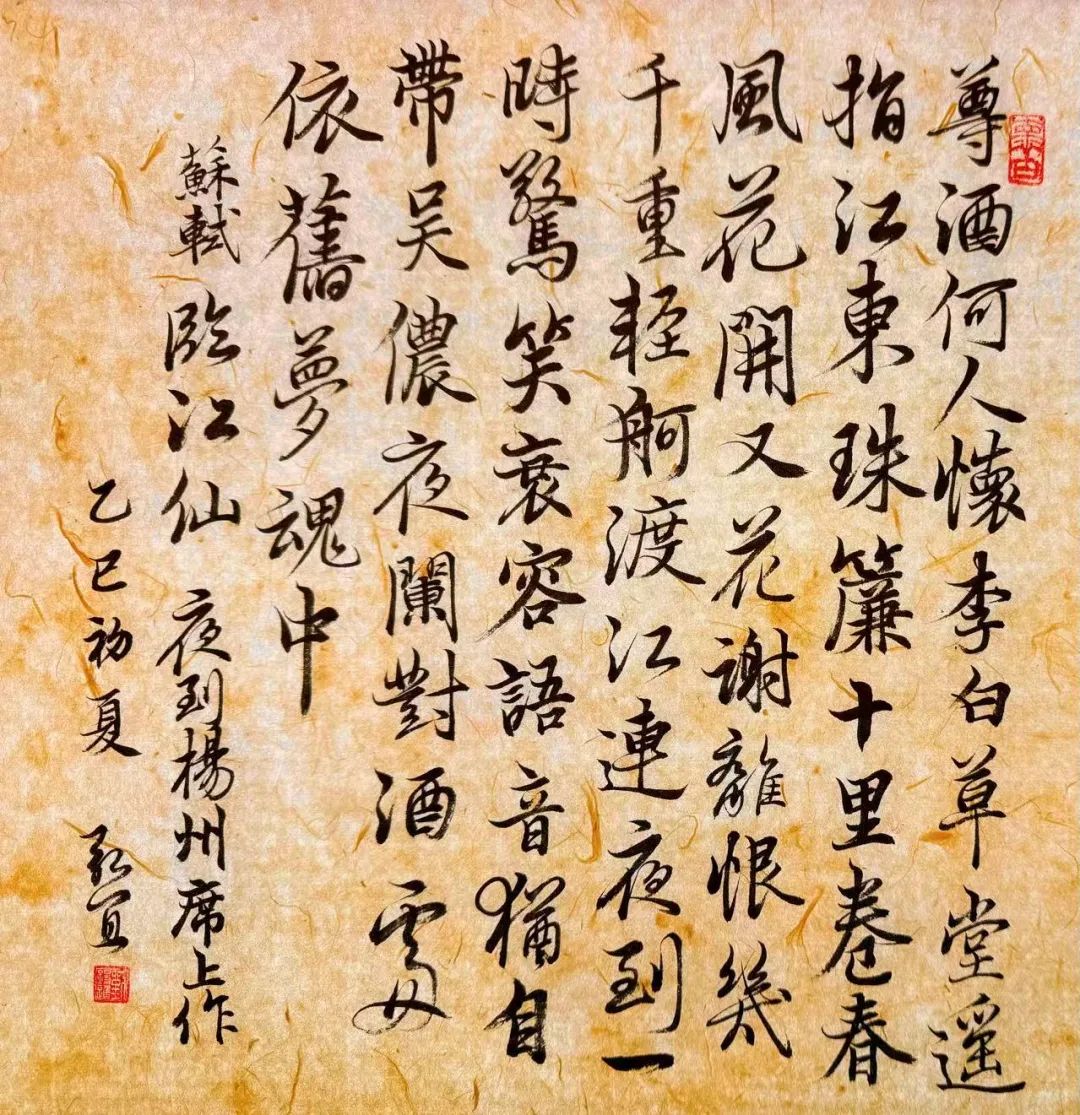 尊酒何人懷李白草堂遥
指江東珠簾十里卷春
風花開又花謝離恨幾
千重輕舸渡江連夜到一
時驚笑衰容語音猶自
帶吴儂夜闌對酒處
依舊夢魂中
蘇軾 臨江仙 夜到楊州席上作
乙巳初夏